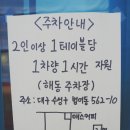 <주차안내>
2인이상 1테이블당
1차량 1시간 지원
(해동 주차장)
주소: 대구 수성구 범어동 562-10